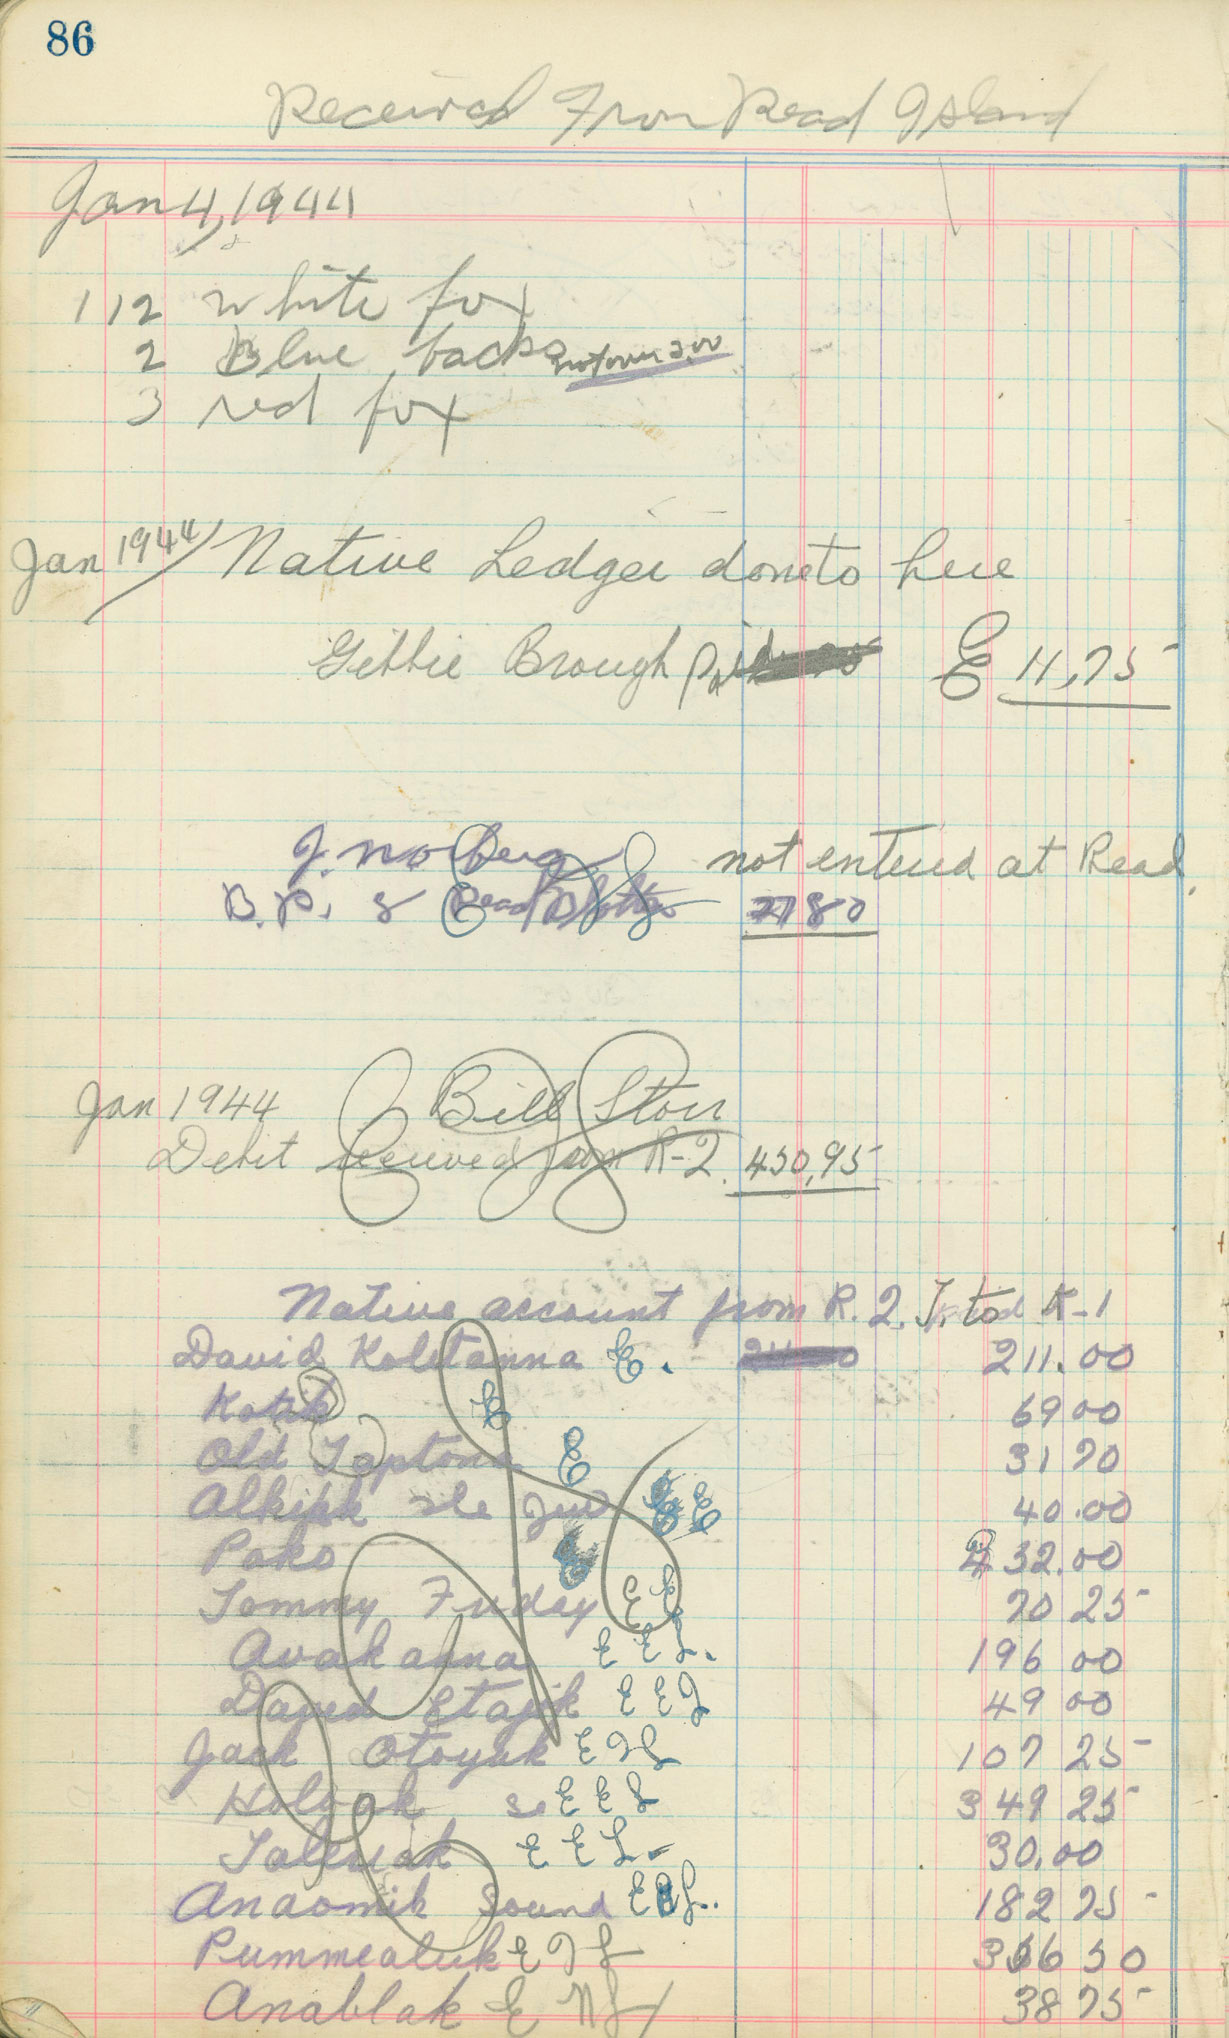 86
Received From Read Island
Jan 4, 1944
112 white fox
2 Blue backs not over 2.00
3 red fox
Jan 1944 / Native Ledger done to here
Gibbie Brough Paid E 11,75
J. Norberg not entered at Read.
B.P. & Read Blotter 2780
Jan 1944 Bill Storr
Debit Received from R-2. 450,95
Native account from R. 2. to K-1
David Kolitanna E. 211.00
Kotik E 69 00
Old Taptona E 31 70
Alkiak E E 40.00
Poko 432.00
Tommy Friday E E 70 25
Avakanna E E L. 196 00
David Etagik E E L 49 00
Jack Otoyuk E 107 25
Holoak E E L 349 25
Taleriak E E L- 30.00
Anaomik Sound E 182 75
Pummealuk E 50
Anablak E 38 75